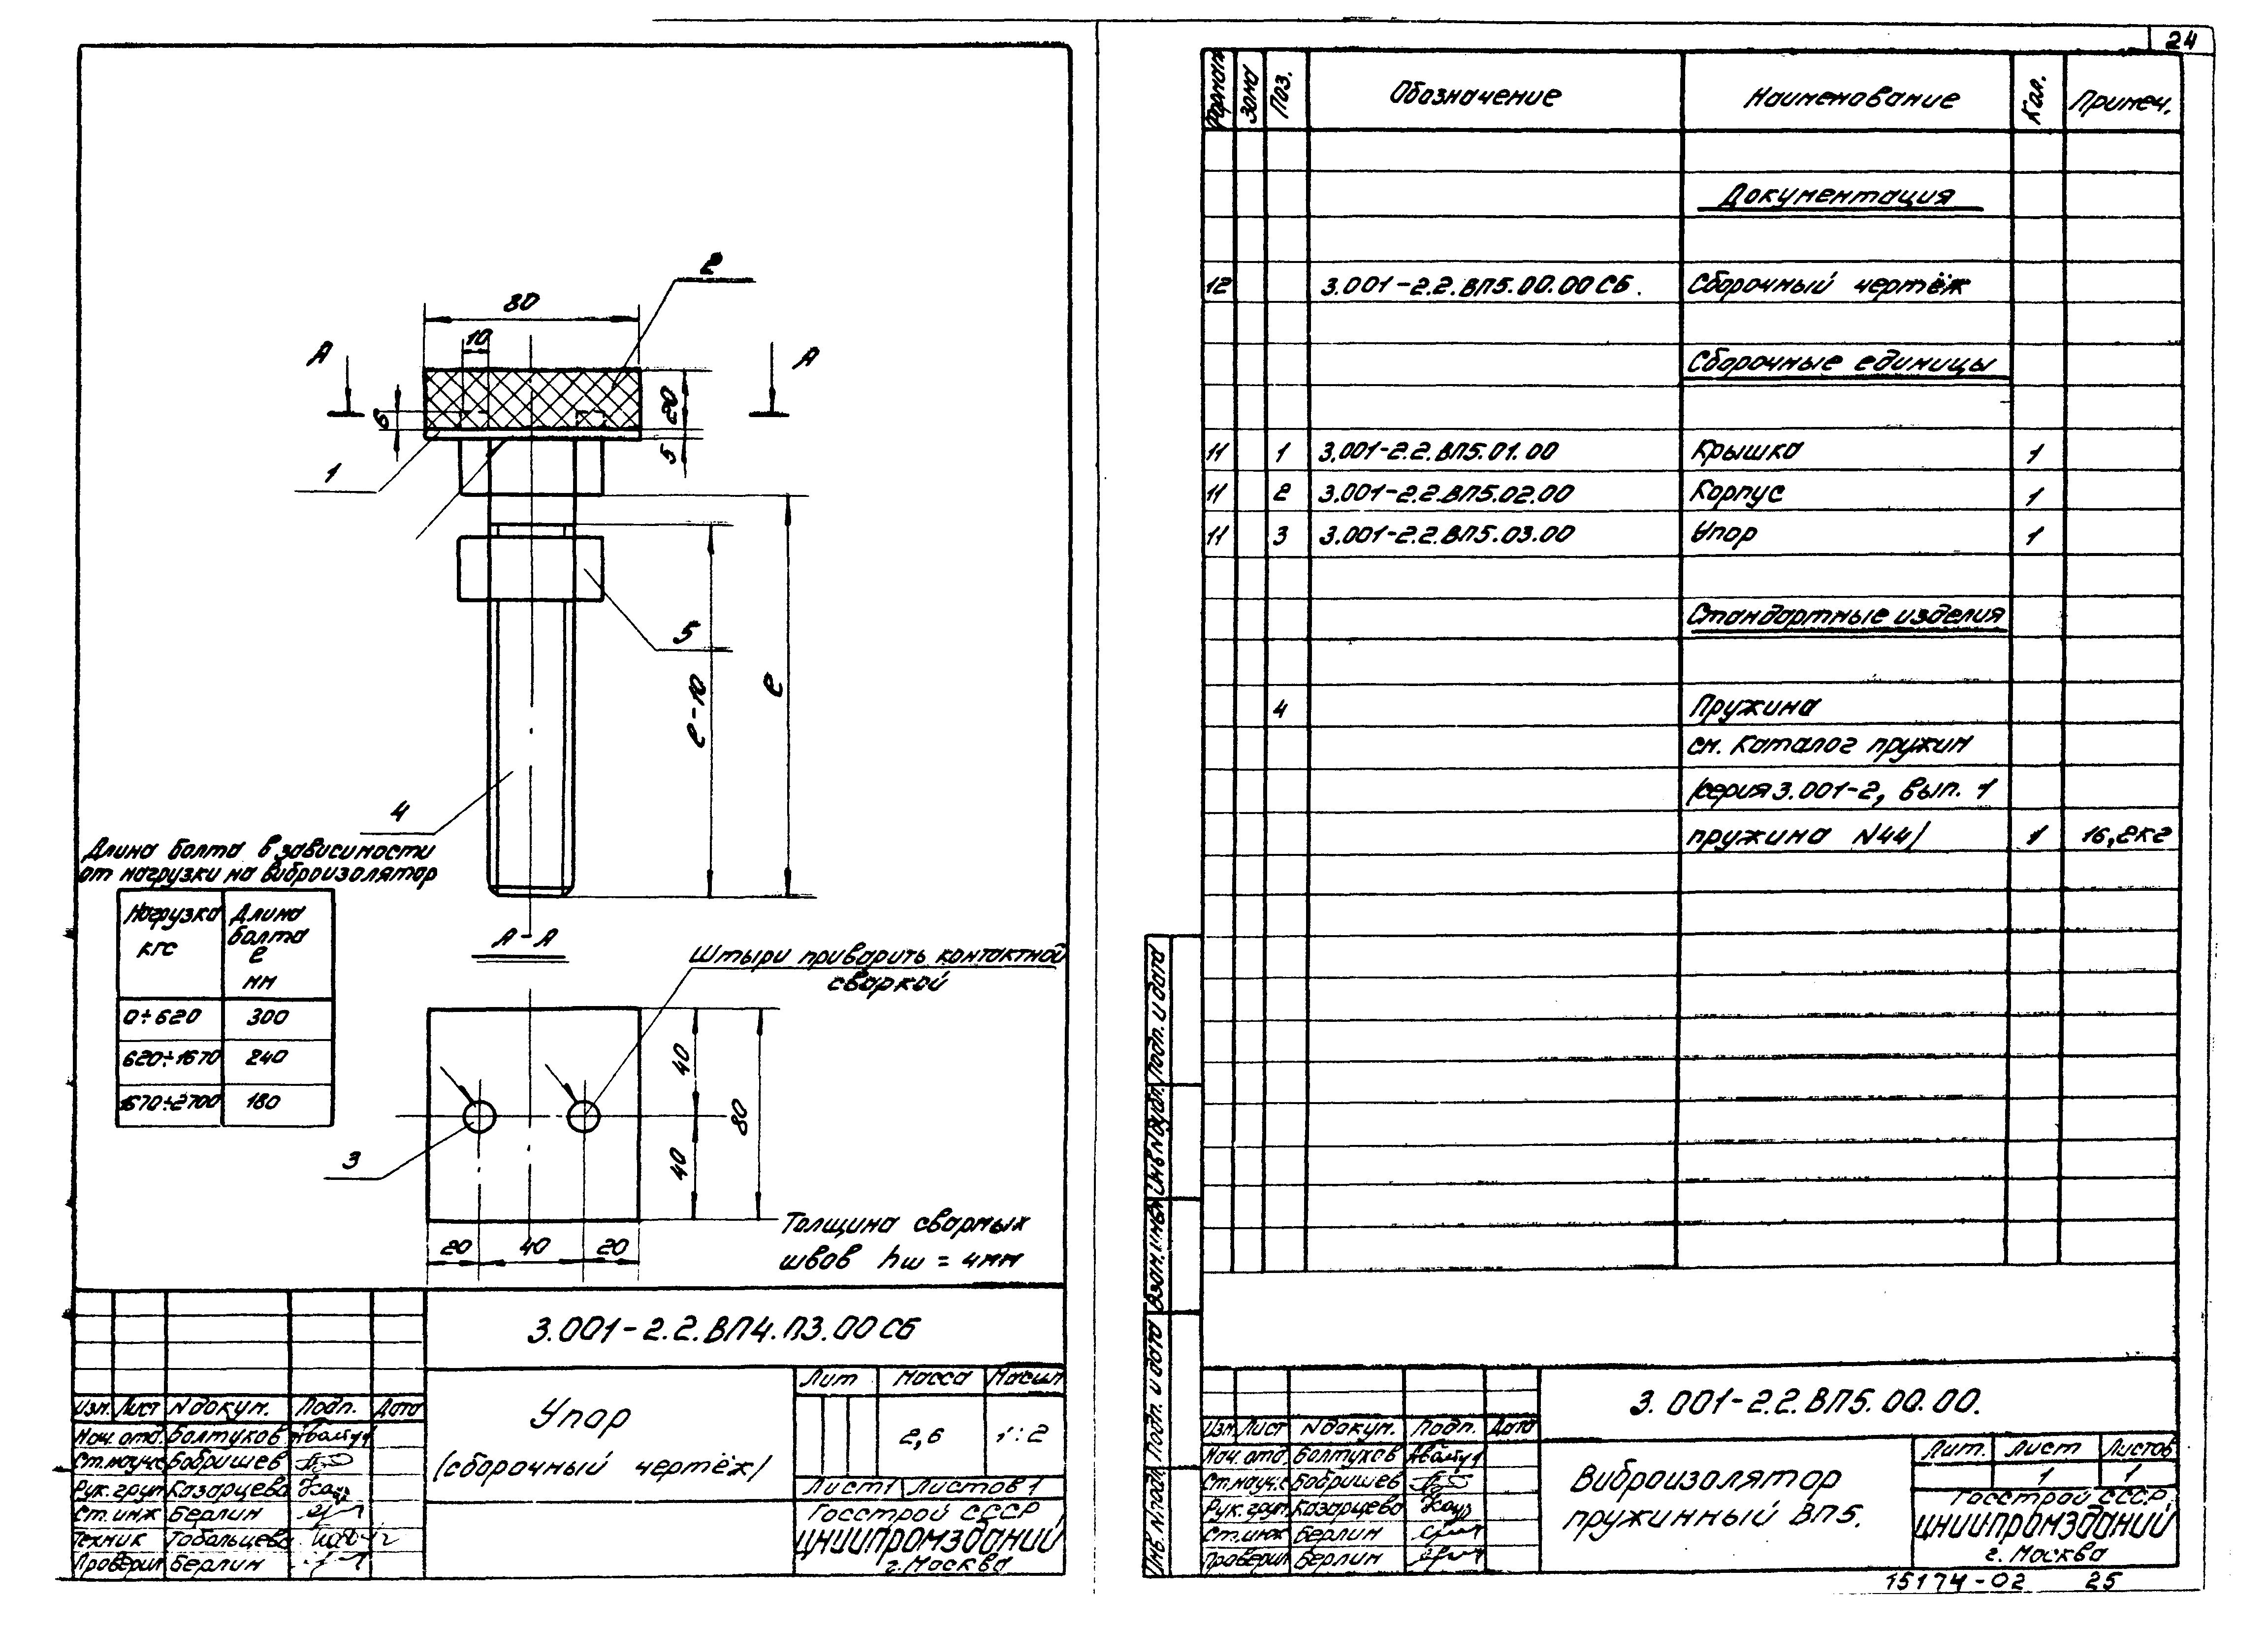 24
2
80
10
А
А
6
20
5
1
5
ℓ-10
ℓ
4
Длина болта в зависимости
от нагрузки на виброизолятор
Нагрузка кгс
Длина болта ℓ мм
0÷620 300
620÷1670 240
1670÷2700 180
А-А
Штыри приварить контактной
сваркой
40
80
40
3
20 40 20
Толщина сварных
швов hш = 4мм
3.001-2.2.ВП4.П3.00СБ
Упор
(сборочный чертёж)
Лит Масса Масшт
2,6 1:2
Лист1 Листов1
Госстрой СССР
ЦНИИПРОМЗДАНИЙ
г. Москва
Изм. Лист № докум. Подп. Дата
Нач. отд. Болтухов
Ст.науч.с Бобришев
Рук. груп Казарцева
Ст. инж Берлин
Техник Тобольцева
Проверил Берлин
Формат Зона Поз. Обозначение Наименование Кол. Примеч.
Документация
12 3.001-2.2.ВП5.00.00СБ. Сборочный чертёж
Сборочные единицы
11 1 3.001-2.2.ВП5.01.00 Крышка 1
11 2 3.001-2.2.ВП5.02.00 Корпус 1
11 3 3.001-2.2.ВП5.03.00 Упор 1
Стандартные изделия
4 Пружина
см. Каталог пружин
/серия 3.001-2, вып. 1
пружина N44/ 1 16,2кг
Подп. и дата
Инв. N дубл.
Взам. инв. N
Подп. и дата
Инв. N подл.
3.001-2.2.ВП5.00.00.
Изм. Лист N докум. Подп. Дата
Нач. отд. Болтухов
Ст.науч.с Бобришев
Рук. груп. Казарцева
Ст. инж Берлин
Проверил Берлин
Виброизолятор
пружинный ВП5.
Лит. Лист Листов
1 1
Госстрой СССР
ЦНИИПРОМЗДАНИЙ
г. Москва
15174-02 25